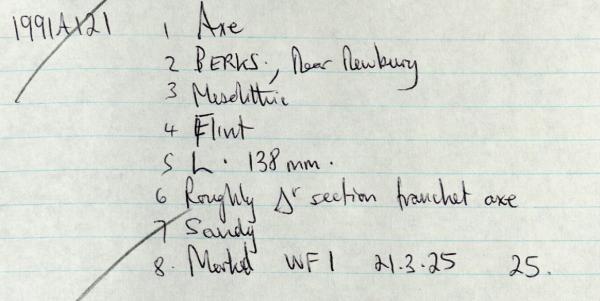 1991A121 1 Axe
2 BERKS., Near Newbury
3 Mesolithic
4 Flint
5 L. 138 mm.
6 Roughly Δr section tranchet axe
7 Sandy
8. Marked WF1 21.3.25 25.